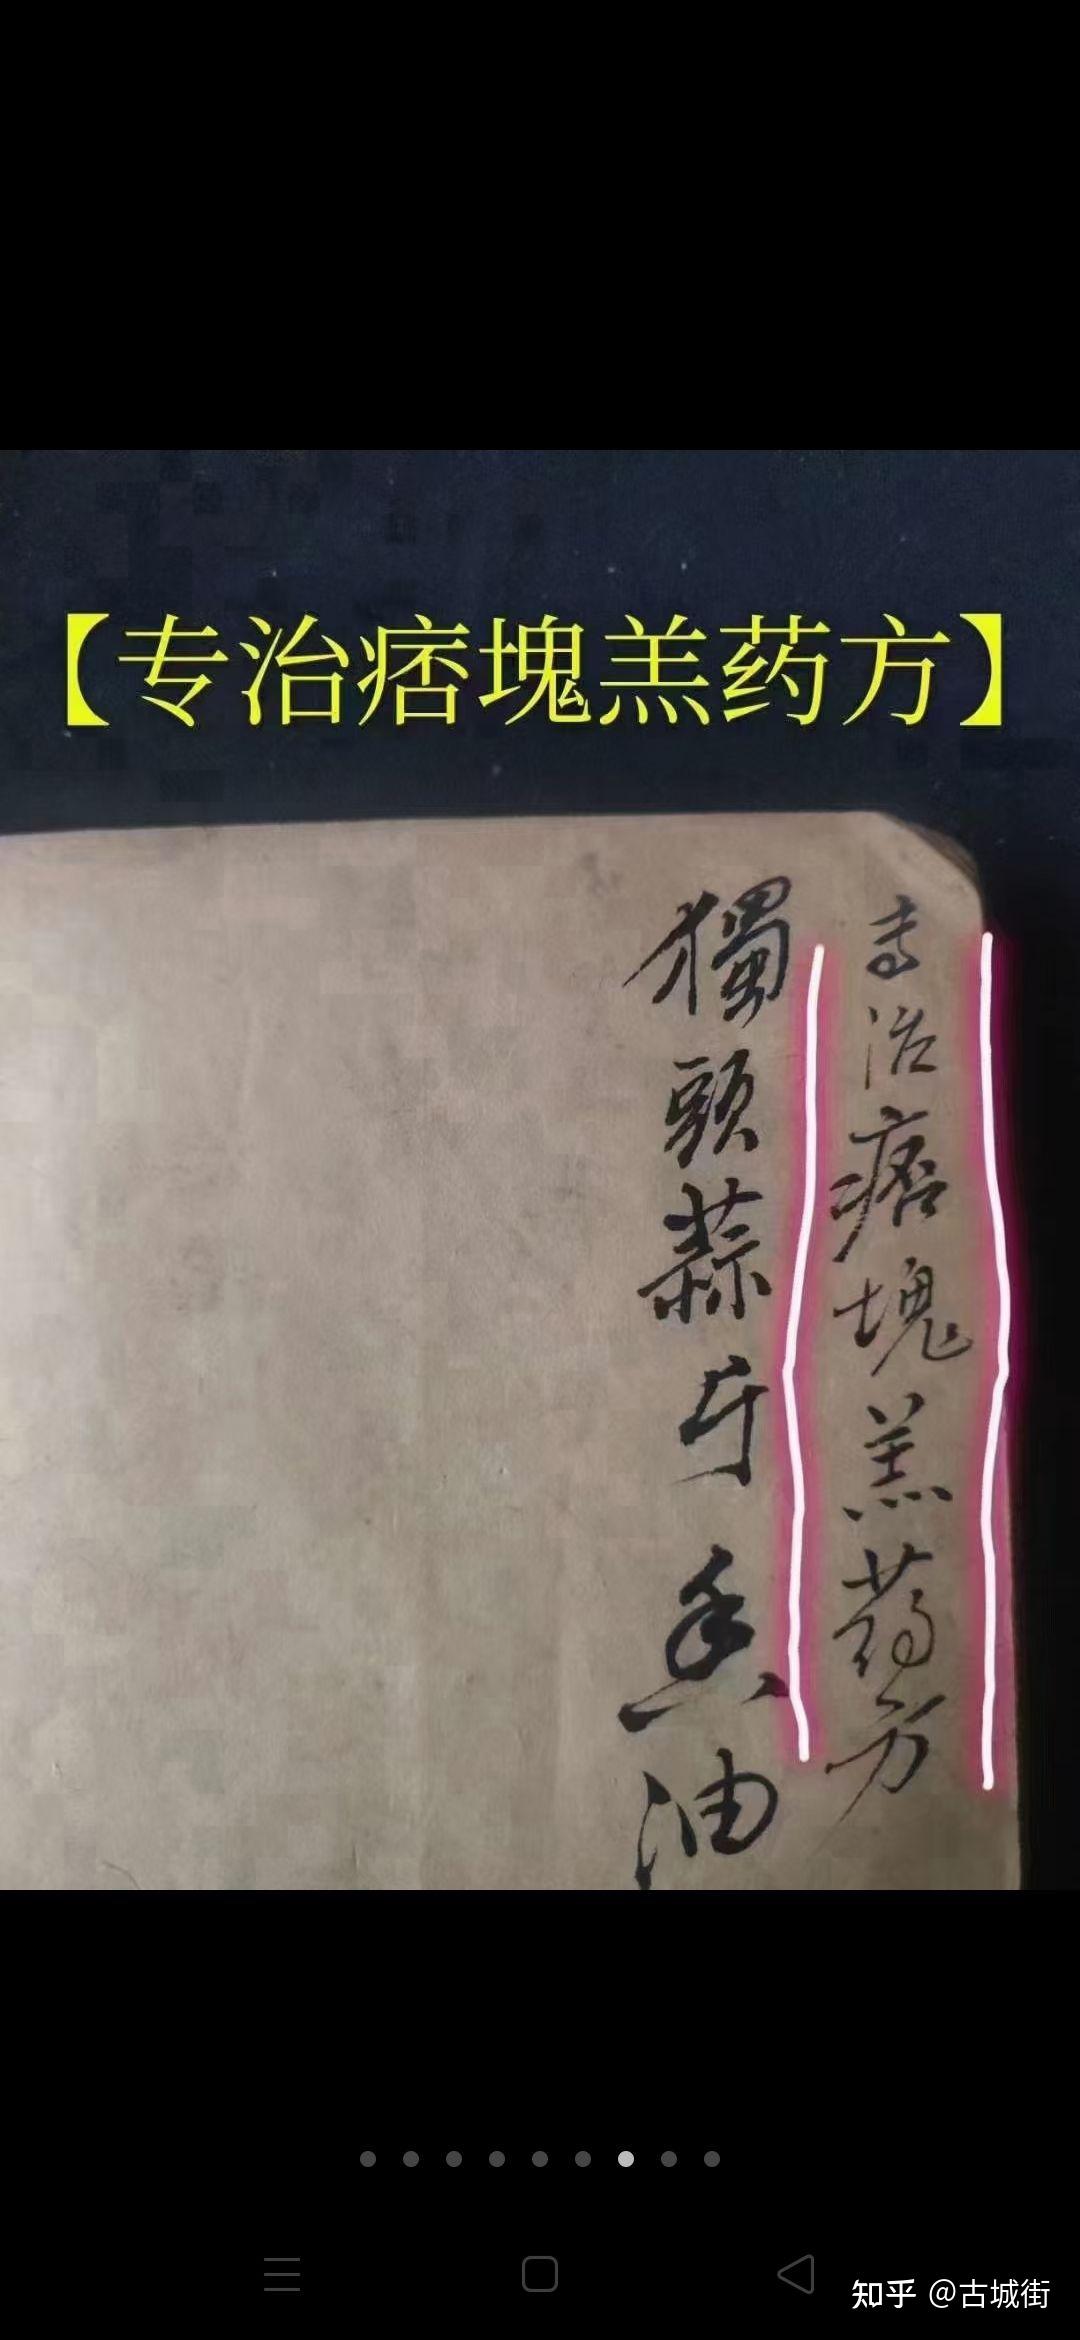 【专治痞塊羔药方】
专治痞塊羔药方
獨頭蒜斤 香油
知乎 @古城街